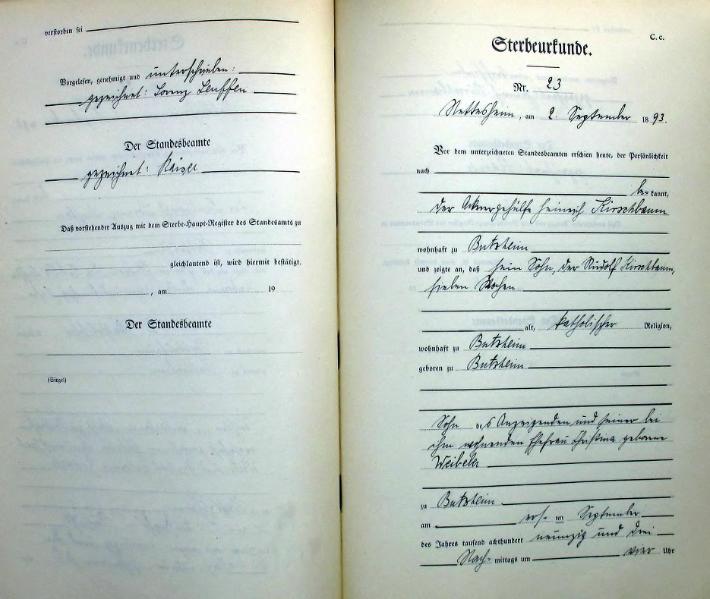 verstorben sei
Vorgelesen, genehmigt und unterschrieben:
gezeichnet: Lorenz
Der Standesbeamte
gezeichnet: Kaiser
Daß vorstehender Auszug mit dem Sterbe-Haupt-Register des Standesamts zu
gleichlautend ist, wird hiermit bestätigt.
, am 19
Der Standesbeamte
(Siegel)
C. c.
Sterbeurkunde.
Nr. 23
Nettesheim, am 2. September 1893.
Vor dem unterzeichneten Standesbeamten erschien heute, der Persönlichkeit
nach
be kannt,
der Ackergehülfe Heinrich Kirschbaum
wohnhaft zu Butzheim
und zeigte an, daß sein Sohn, der Rudolf Kirschbaum,
sieben Wochen
alt, katholischer Religion,
wohnhaft zu Butzheim
geboren zu Butzheim
Sohn des Anzeigenden und seiner bei
ihm wohnenden Ehefrau Christina geborene
zu Butzheim
am ersten September
des Jahres tausend achthundert neunzig und drei
Nach- mittags um vier Uhr